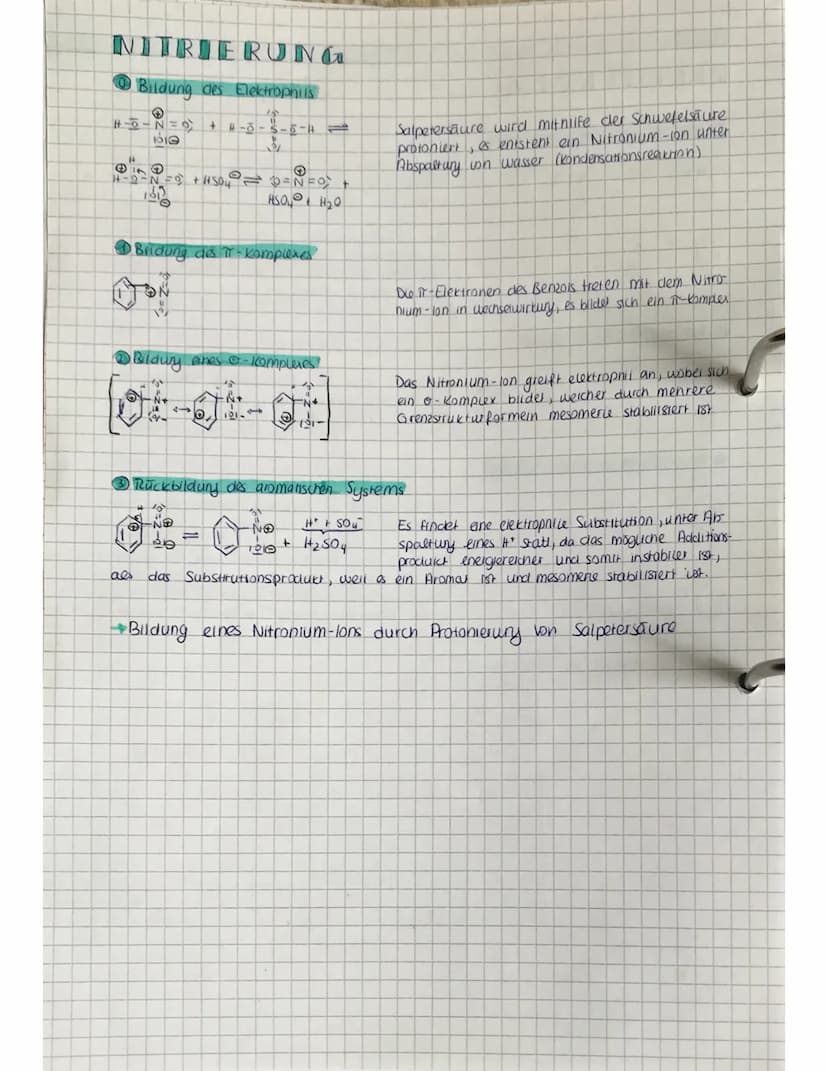 NITRIERUNG
0 Bildung des Elektrophils
H-O-N=O + H-O-S-O-H ⇌
Salpetersäure wird mithilfe der Schwefelsäure
protoniert, es entsteht ein Nitronium-Ion unter
Abspaltung von Wasser (Kondensationsreaktion)
H-O-N=O + HSO₄⊖ ⇌ O=N=O +
HSO₄⊖ + H₂O
1 Bildung des π-Komplexes
Die π-Elektronen des Benzols treten mit dem Nitro-
nium-Ion in Wechselwirkung, es bildet sich ein π-Komplex
2 Bildung eines σ-Komplexes
Das Nitronium-Ion greift elektrophil an, wobei sich
ein σ-Komplex bildet, welcher durch mehrere
Grenzstrukturformeln mesomerie stabilisiert ist
3 Rückbildung des aromatischen Systems
H⁺ + SO₄⁻
+ H₂SO₄
Es findet eine elektrophile Substitution, unter Ab-
spaltung eines H⁺ statt, da das mögliche Additions-
produkt energiereicher und somit instabiler ist,
als das Substitutionsprodukt, weil es ein Aromat ist und mesomerie stabilisiert ist.
→ Bildung eines Nitronium-Ions durch Protonierung von Salpetersäure